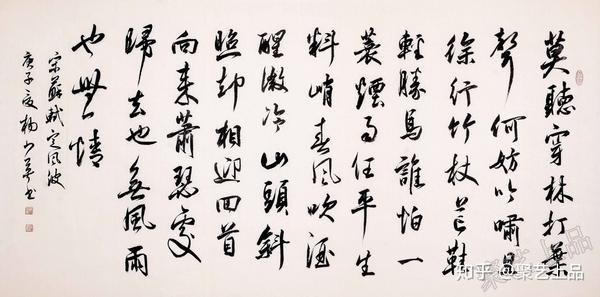 莫聽穿林打葉
聲何妨吟嘯且
徐行竹杖芒鞋
輕勝馬誰怕一
蓑煙雨任平生
料峭春風吹酒
醒微冷山頭斜
照却相迎回首
向来蕭瑟處
歸去也無風雨
也無情
宋蘇軾定風波
庚子夏楊書
聚艺上品
知乎 @聚艺上品